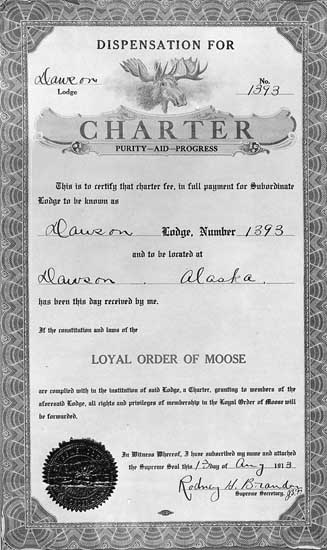 DISPENSATION FOR
Dawson
Lodge
No.
1393
CHARTER
PURITY—AID—PROGRESS
This is to certify that charter fee, in full payment for Subordinate
Lodge to be known as
Dawson Lodge, Number 1393
and to be located at
Dawson, Alaska,
has been this day received by me.
If the constitution and laws of the
LOYAL ORDER OF MOOSE
are complied with in the institution of said Lodge, a Charter, granting to members of the
aforesaid Lodge, all rights and privileges of membership in the Loyal Order of Moose will
be forwarded.
In Witness Whereof, I have subscribed my name and attached
the Supreme Seal this day of Aug 1913
Rodney H. Brandon
Supreme Secretary.